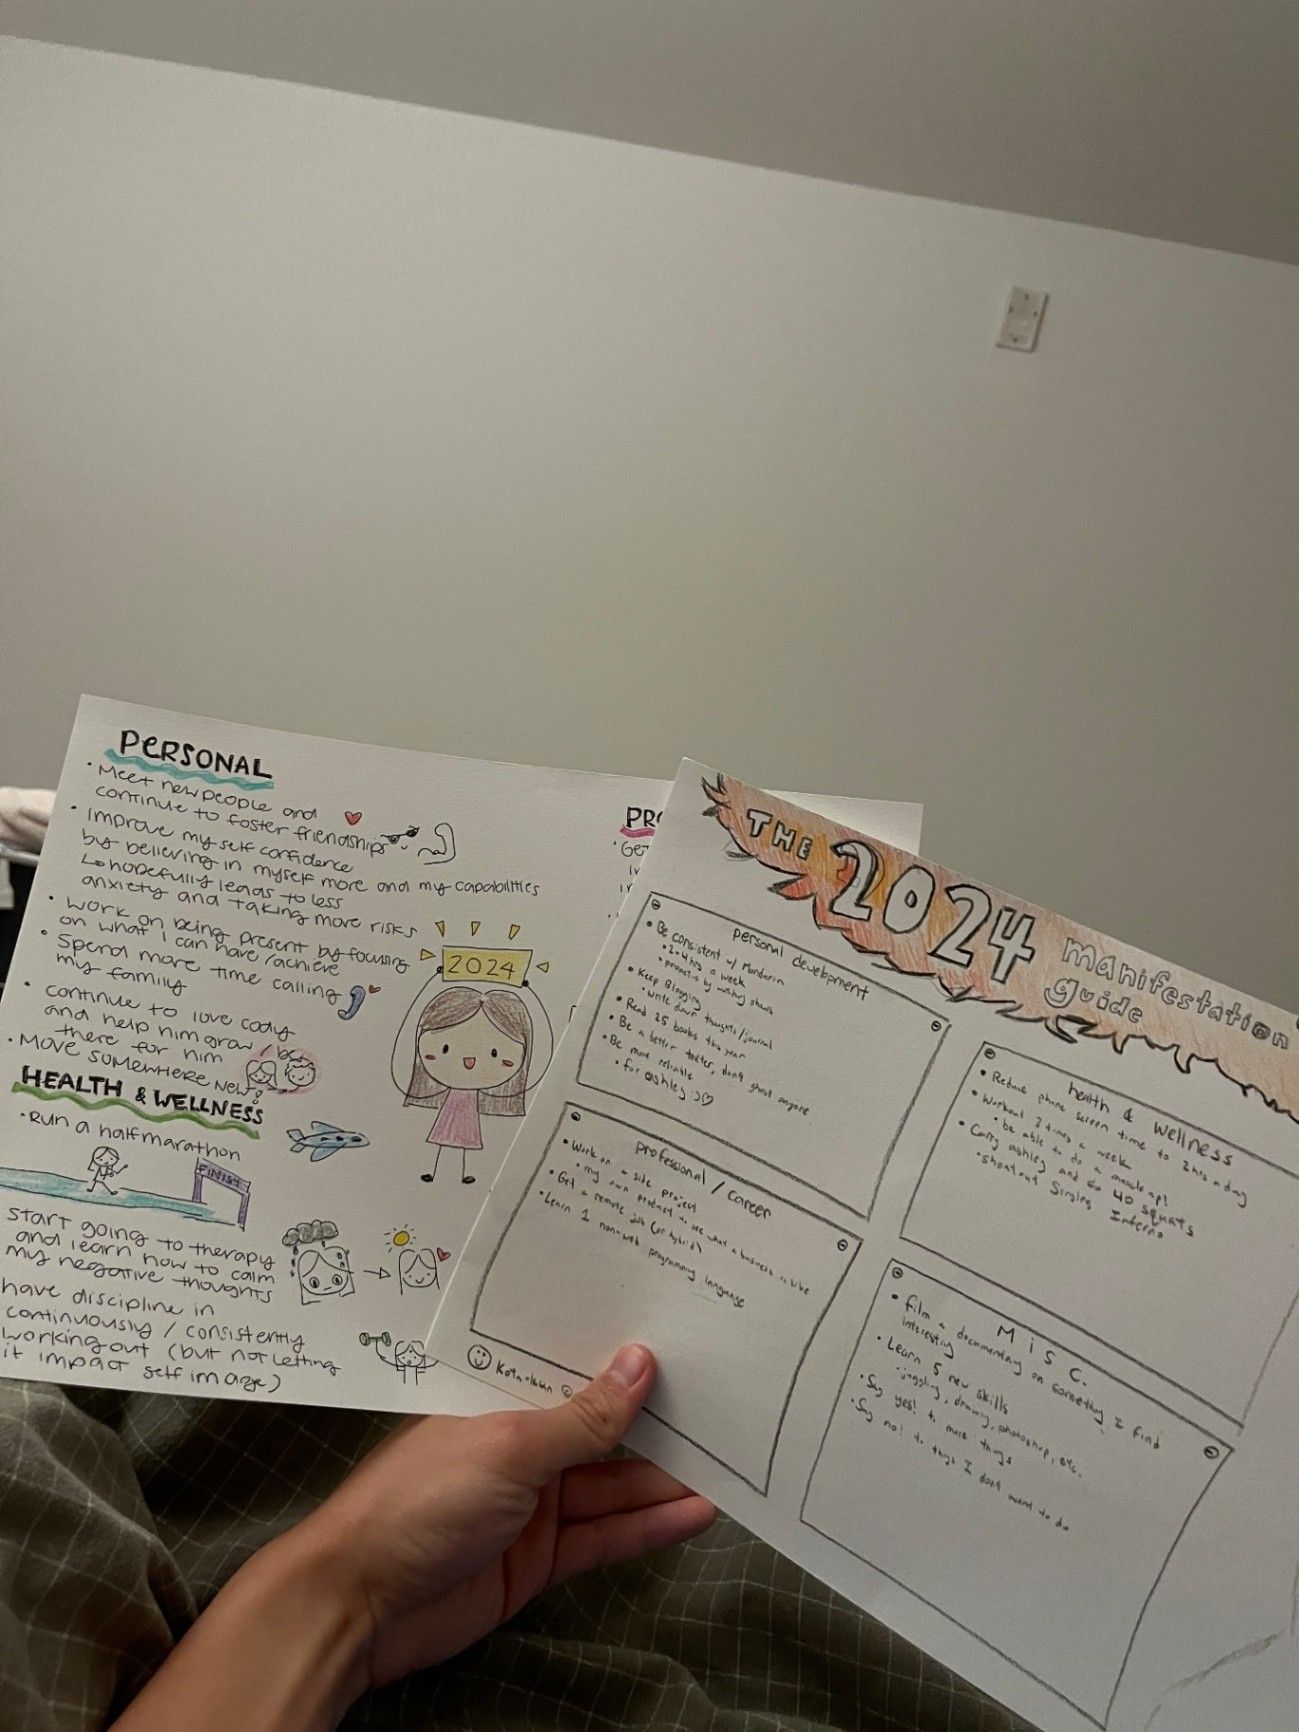 PERSONAL
• Meet new people and
continue to foster friendships
• improve my self confidence
by believing in myself more and my capabilities
↳ hopefully leads to less
anxiety and taking more risks
• work on being present by focusing
on what I can have/achieve
• Spend more time calling
my family
• continue to love cody
and help him grow / be
there for him
• MOVE SOMEWHERE NEW?
HEALTH & WELLNESS
• Run a half marathon
FINISH
start going to therapy
and learn how to calm
my negative thoughts
have discipline in
continuously / consistently
working out (but not letting
it impact self image)
2024
THE 2024 manifestation
guide
personal development
• Be consistent w/ Mandarin
• 2-4 hrs a week
• proactive by watching shows
• Keep Blogging
• write down thoughts/journal
• Read 25 books this year
• Be a better texter, don't ghost anyone
• Be more reliable
• for ashley :) ♡
health & wellness
• Reduce phone screen time to 2 hrs a day
• Workout 3 times a week
• be able to do a muscle up!
• Carry ashley and do 40 squats
• shoutout Singles Inferno
professional / career
• Work on a side project
• my own product to see what a business is like
• Get a remote job (or hybrid)
• Learn 1 non-web programming language
Misc.
• Film a documentary on something I find
interesting
• Learn 5 new skills
juggling, drawing, photoshop, etc.
• Say yes! to more things
• Say no! to things I don't want to do